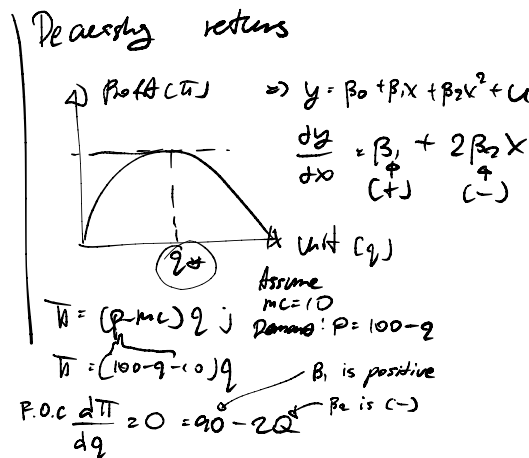 Decreasing returns
Profit (π) ⇒ y = β₀ + β₁x + β₂x² + u
dy/dx = β₁ + 2β₂x
(+) (-)
q* unit (q)
Assume
mc = 10
π = (p - mc) q ; Demand: P = 100 - q
π = (100 - q - 10) q
β₁ is positive
F.O.C dπ/dq = 0 = 90 - 2Q β₂ is (-)